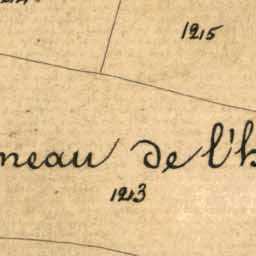 1215
neau de l'h
1213